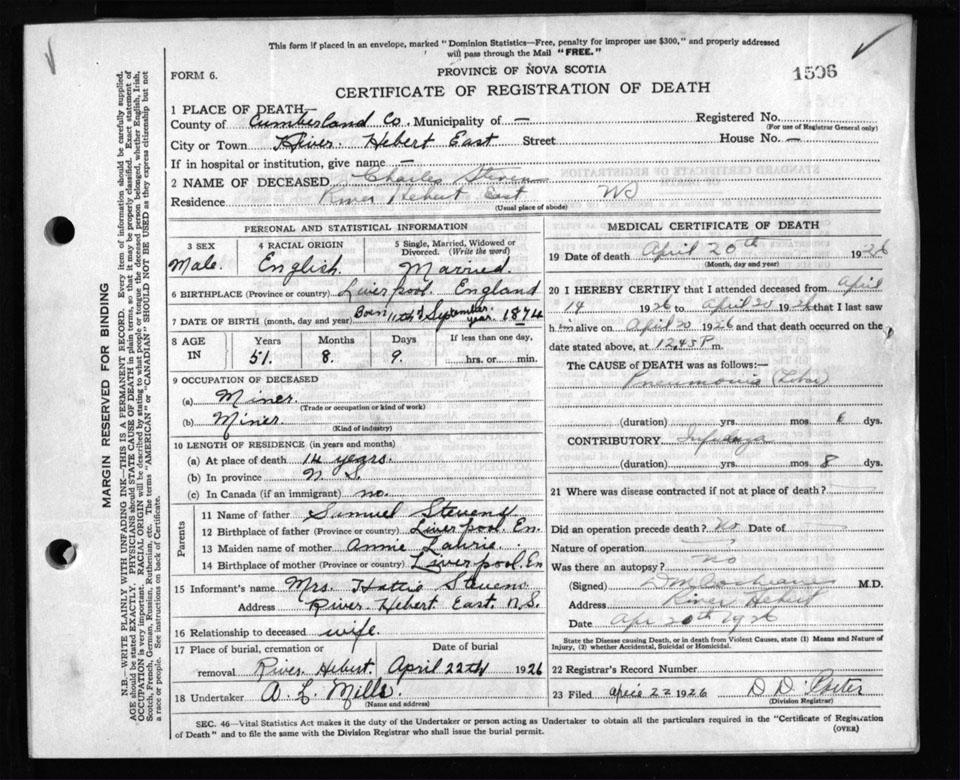 This form if placed in an envelope, marked "Dominion Statistics—Free, penalty for improper use $300," and properly addressed
will pass through the Mail "FREE."
FORM 6.
PROVINCE OF NOVA SCOTIA
1506
CERTIFICATE OF REGISTRATION OF DEATH
1 PLACE OF DEATH—
County of Cumberland Co. Municipality of —
Registered No.
(For use of Registrar General only)
City or Town River Hebert East Street House No. —
If in hospital or institution, give name —
2 NAME OF DECEASED Charles Steven
Residence River Hebert East NS
(Usual place of abode)
PERSONAL AND STATISTICAL INFORMATION
3 SEX 4 RACIAL ORIGIN 5 Single, Married, Widowed or
Divorced. (Write the word)
Male. English. Married.
6 BIRTHPLACE (Province or country) Liverpool. England
7 DATE OF BIRTH (month, day and year) Born 11th September year. 1874
8 AGE IN Years Months Days If less than one day,
51. 8. 9. hrs. or min.
9 OCCUPATION OF DECEASED
(a) Miner.
(Trade or occupation or kind of work)
(b) Miner.
(Kind of industry)
10 LENGTH OF RESIDENCE (in years and months)
(a) At place of death 14 years.
(b) In province N. S.
(c) In Canada (if an immigrant) no.
Parents
11 Name of father Samuel Stevens
12 Birthplace of father (Province or country) Liverpool. En.
13 Maiden name of mother Annie Lawrie.
14 Birthplace of mother (Province or country) Liverpool. En
15 Informant's name Mrs. Hattie Stevens
Address River. Hebert East. N.S.
16 Relationship to deceased wife.
17 Place of burial, cremation or Date of burial
removal River. Hebert. April 22th 1926
18 Undertaker A. L. Mills.
(Name and address)
MEDICAL CERTIFICATE OF DEATH
19 Date of death April 20th 1926
(Month, day and year)
20 I HEREBY CERTIFY that I attended deceased from April
14 1926 to April 20 1926 that I last saw
him alive on April 20 1926 and that death occurred on the
date stated above, at 12.45 P m.
The CAUSE of DEATH was as follows:—
Pneumonia (Lobar)
(duration) yrs. mos. 6 dys.
CONTRIBUTORY Influenza
(duration) yrs. mos. 8 dys.
21 Where was disease contracted if not at place of death?
Did an operation precede death? No Date of
Nature of operation
Was there an autopsy? no
(Signed) D M Cochrane M.D.
Address River Hebert
Date Apr 20th 1926
State the Disease causing Death, or in death from Violent Causes, state (1) Means and Nature of
Injury, (2) whether Accidental, Suicidal or Homicidal.
22 Registrar's Record Number
23 Filed April 22 1926 D D Porter
(Division Registrar)
SEC. 46—Vital Statistics Act makes it the duty of the Undertaker or person acting as Undertaker to obtain all the particulars required in the "Certificate of Registration
of Death" and to file the same with the Division Registrar who shall issue the burial permit.
(OVER)
MARGIN RESERVED FOR BINDING
N.B.—WRITE PLAINLY WITH UNFADING INK—THIS IS A PERMANENT RECORD. Every item of information should be carefully supplied.
AGE should be stated EXACTLY. PHYSICIANS should STATE CAUSE OF DEATH in plain terms, so that it may be properly classified. Exact statement of
OCCUPATION is very important. RACIAL ORIGIN will be described by stating to what people or tongue the deceased person belonged, whether English, Irish,
Scotch, French, German, Russian, Ruthenian, etc. The terms "AMERICAN" or "CANADIAN" SHOULD NOT BE USED as they express citizenship but not
a race or people. See instructions on back of Certificate.